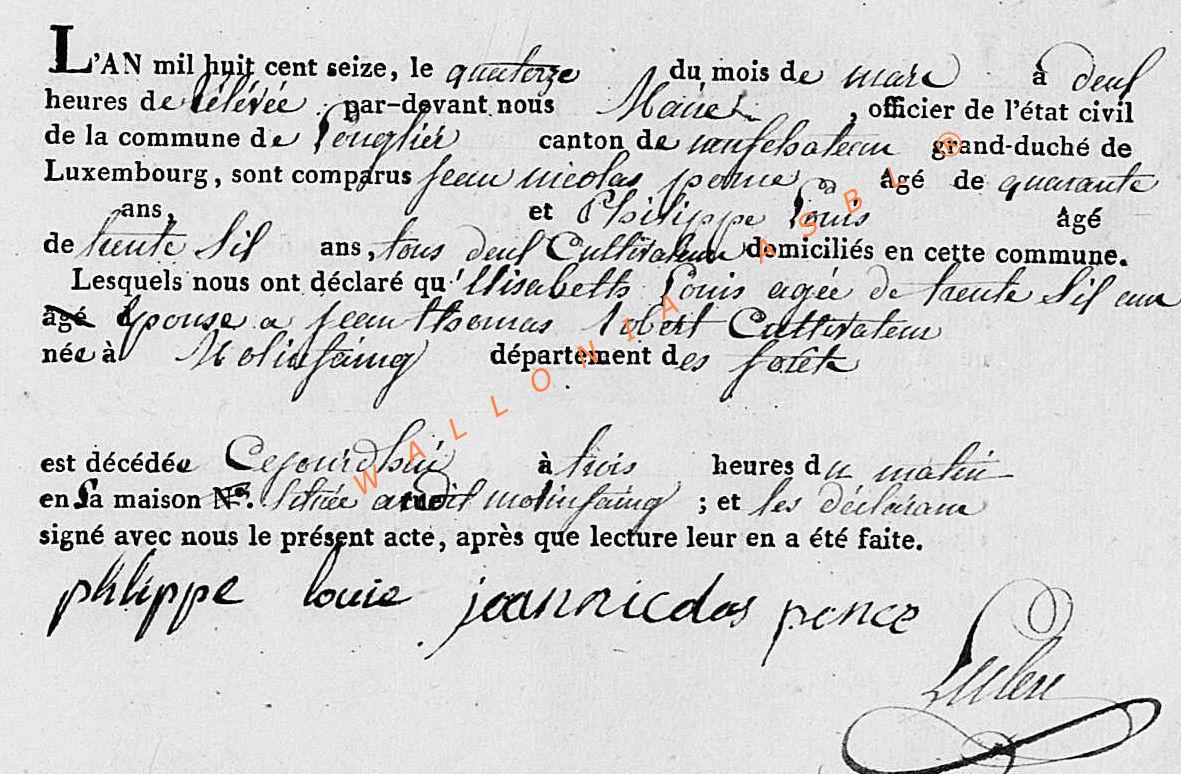 L'AN mil huit cent seize, le quatorze du mois de mars à deux
heures de rélévée par-devant nous Maire, officier de l'état civil
de la commune de Longlier canton de neufchateau grand-duché de
Luxembourg, sont comparus jean nicolas ponce âgé de quarante
ans, et Philippe Louis âgé
de trente Six ans, tous deux Cultivateurs domiciliés en cette commune.
Lesquels nous ont déclaré qu'Elisabeth Louis agée de trente Six ans
âgé Epouse a jean thomas Robert Cultivateur
née à Molinfaing département des forêts
est décédée Cejourd'hui à trois heures du matin
en Sa maison N°. Située audit molinfaing ; et les déclarans
signé avec nous le présent acte, après que lecture leur en a été faite.
philippe louis jean nicolas ponce
WALLONIA ASBL ®